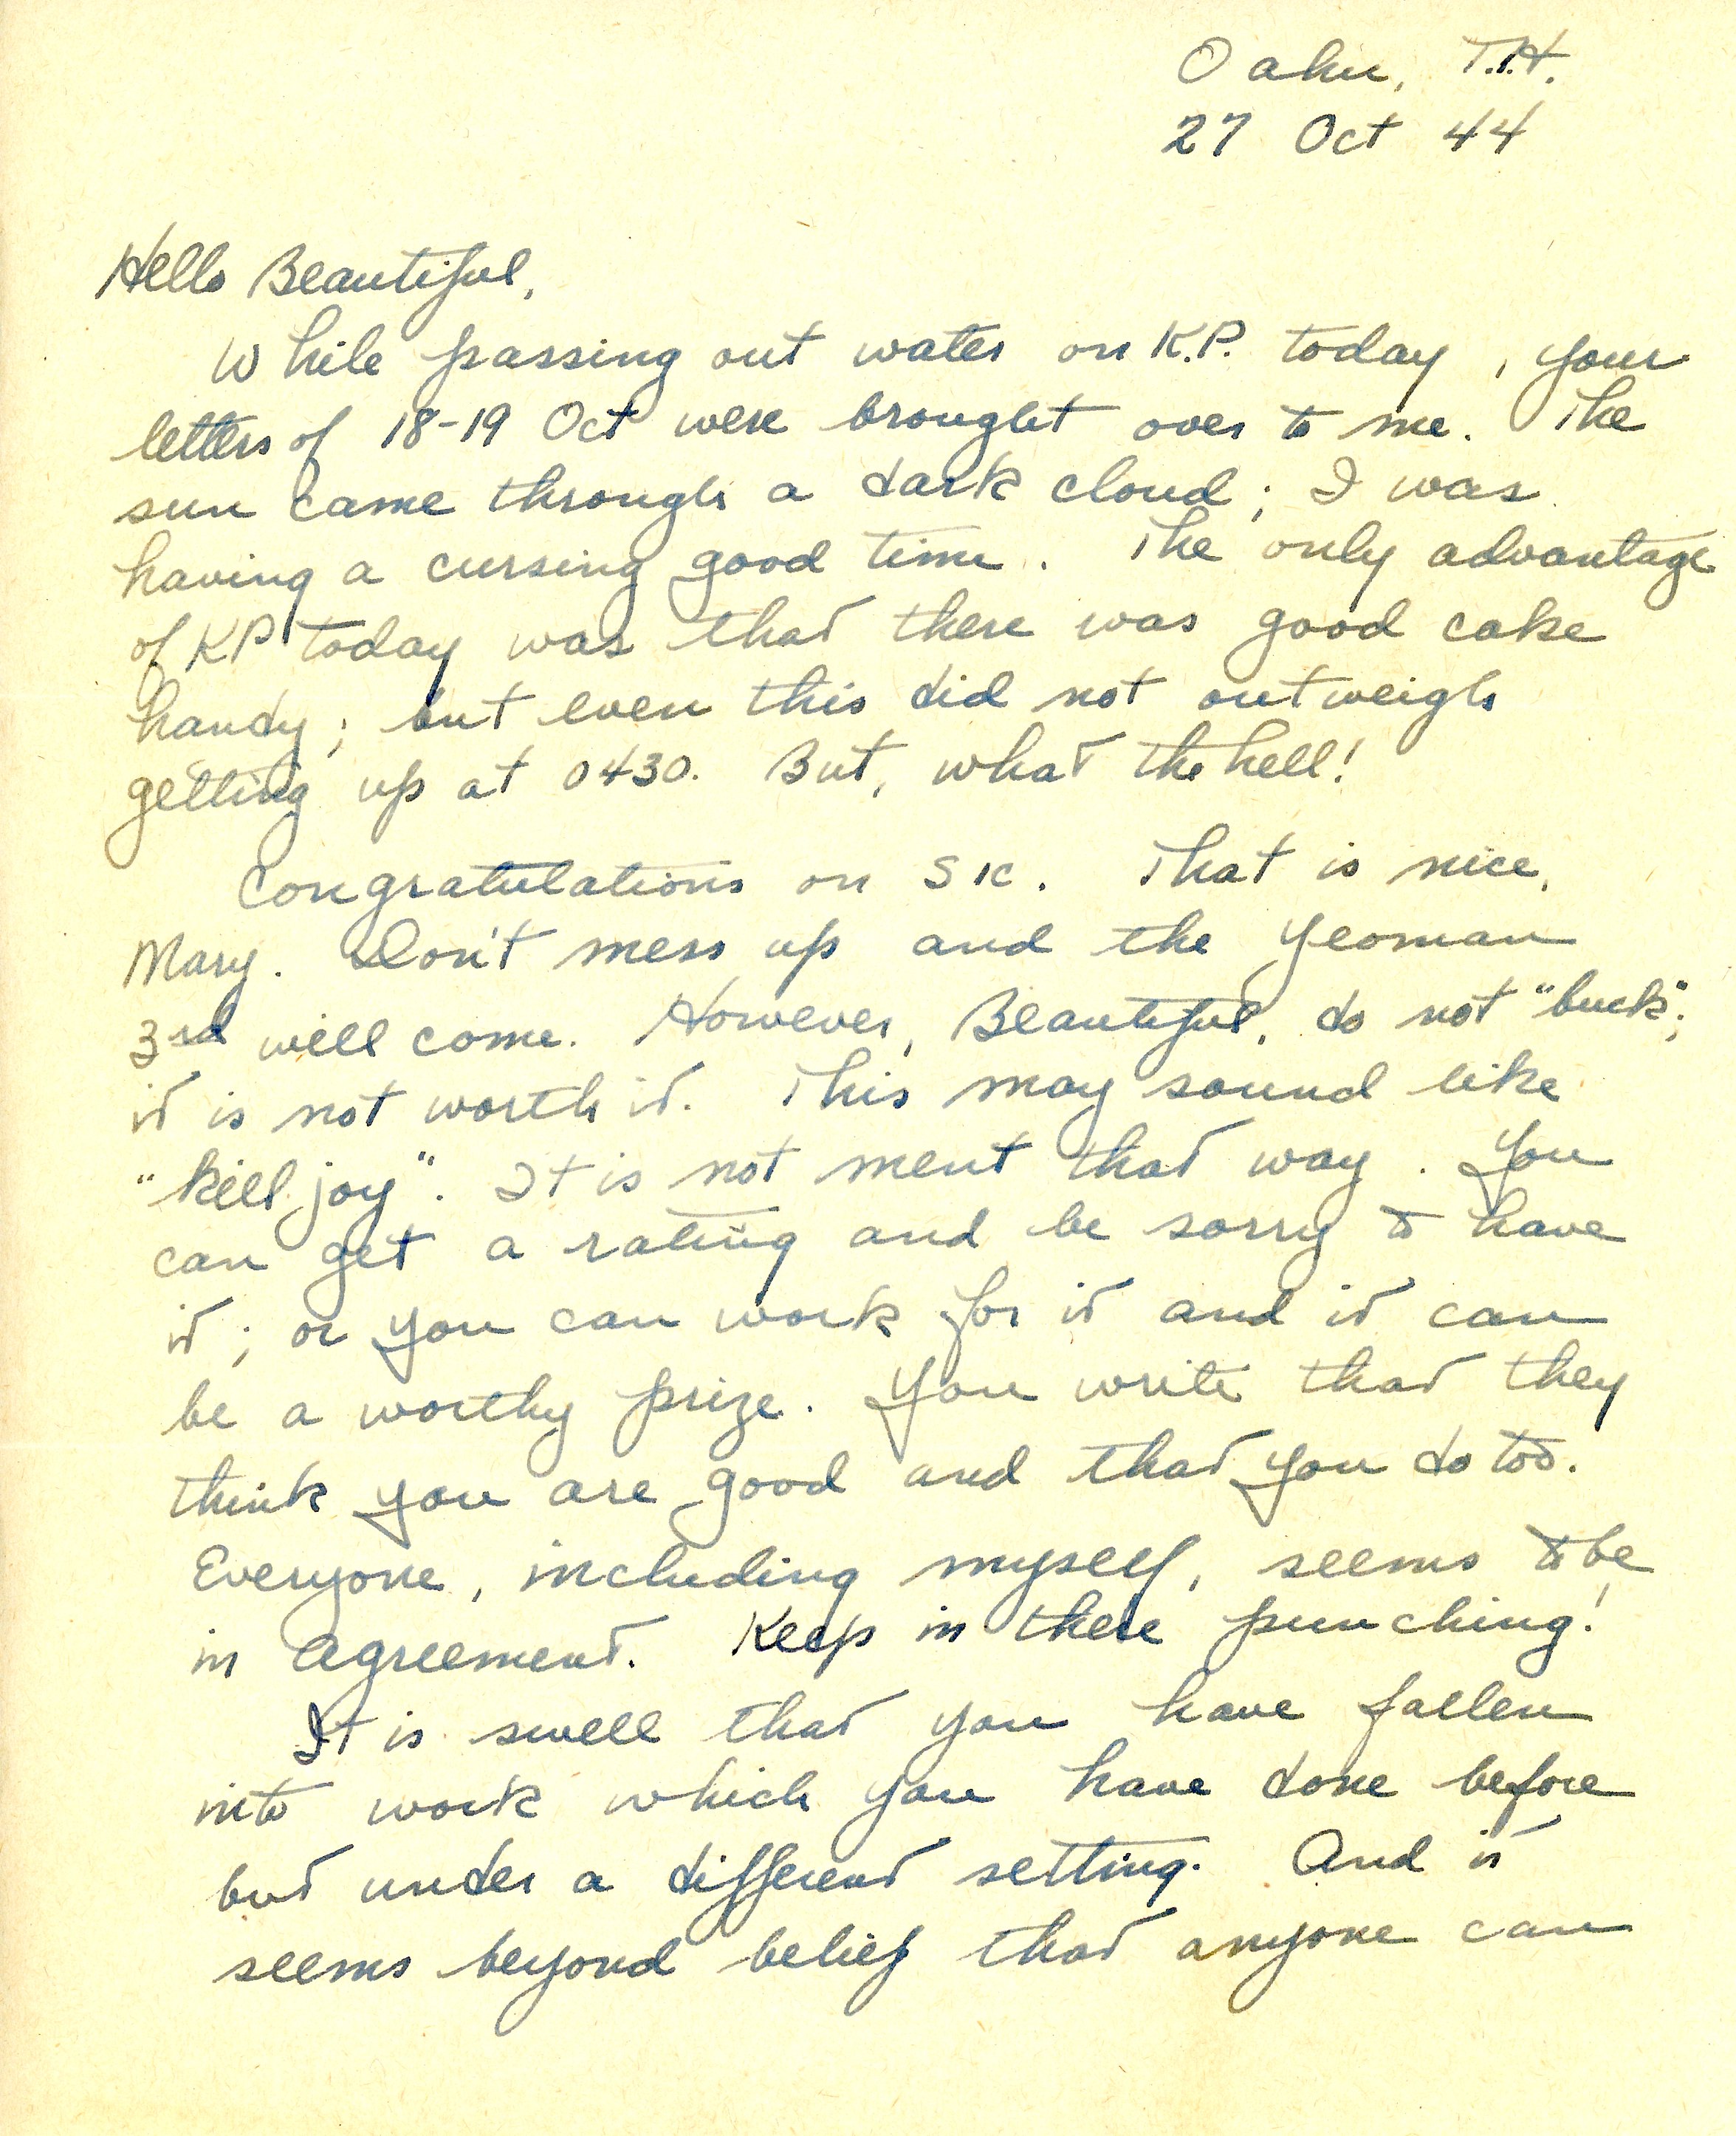 Oahu, T.H.
27 Oct 44
Hello Beautiful,
While passing out water on K.P. today, your
letters of 18-19 Oct were brought over to me. The
sun came through a dark cloud; I was
having a cursing good time. The only advantage
of KP today was that there was good cake
handy; but even this did not outweigh
getting up at 0430. But, what the hell!
Congratulations on S1c. That is nice,
Mary. Don't mess up and the Yeoman
3rd will come. However, Beautiful, do not "buck";
it is not worth it. This may sound like
"kill joy". It is not ment that way. You
can get a rating and be sorry to have
it; or you can work for it and it can
be a worthy prize. You write that they
think you are good and that you do too.
Everyone, including myself, seems to be
in agreement. Keep in there punching!
It is swell that you have fallen
into work which you have done before
but under a different setting. And it
seems beyond belief that anyone can